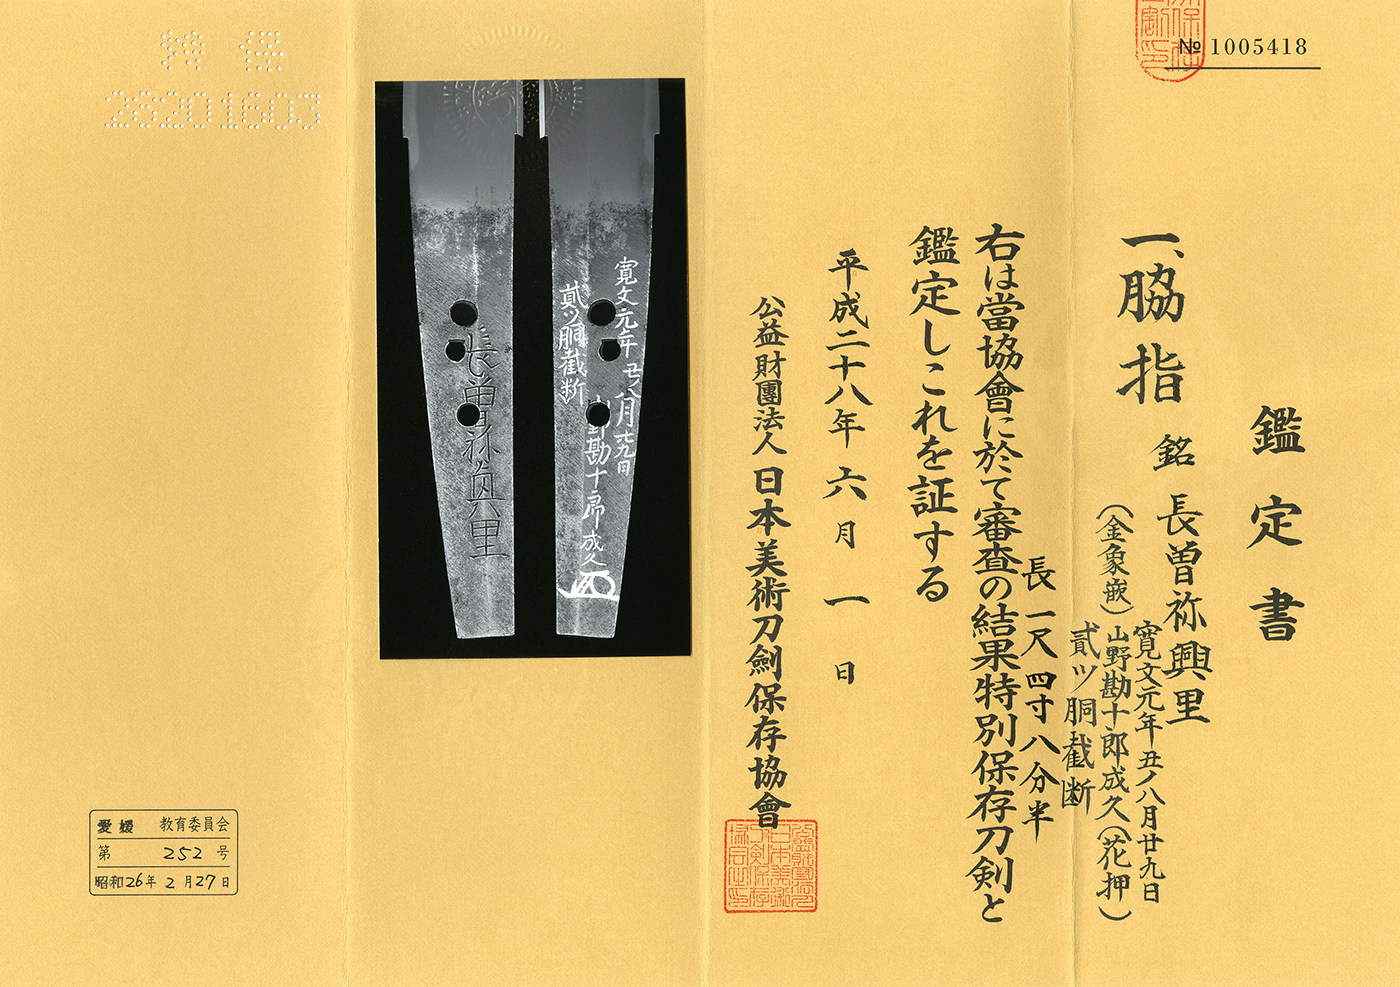 № 1005418
鑑定書
一、脇指 銘 長曽祢興里
(金象嵌)
寛文元年丑ノ八月廿九日
山野勘十郎成久(花押)
貳ツ胴截断
長 一尺四寸八分半
右は當協會に於て審査の結果特別保存刀剣と
鑑定しこれを証する
平成二十八年 六月 一日
公益財團法人 日本美術刀劍保存協會
寛文元年丑ノ八月廿九日
貳ツ胴截断
山野勘十郎成久
長曽祢興里
特 保
28201603
愛媛 教育委員会
第 252 号
昭和26年 2月27日